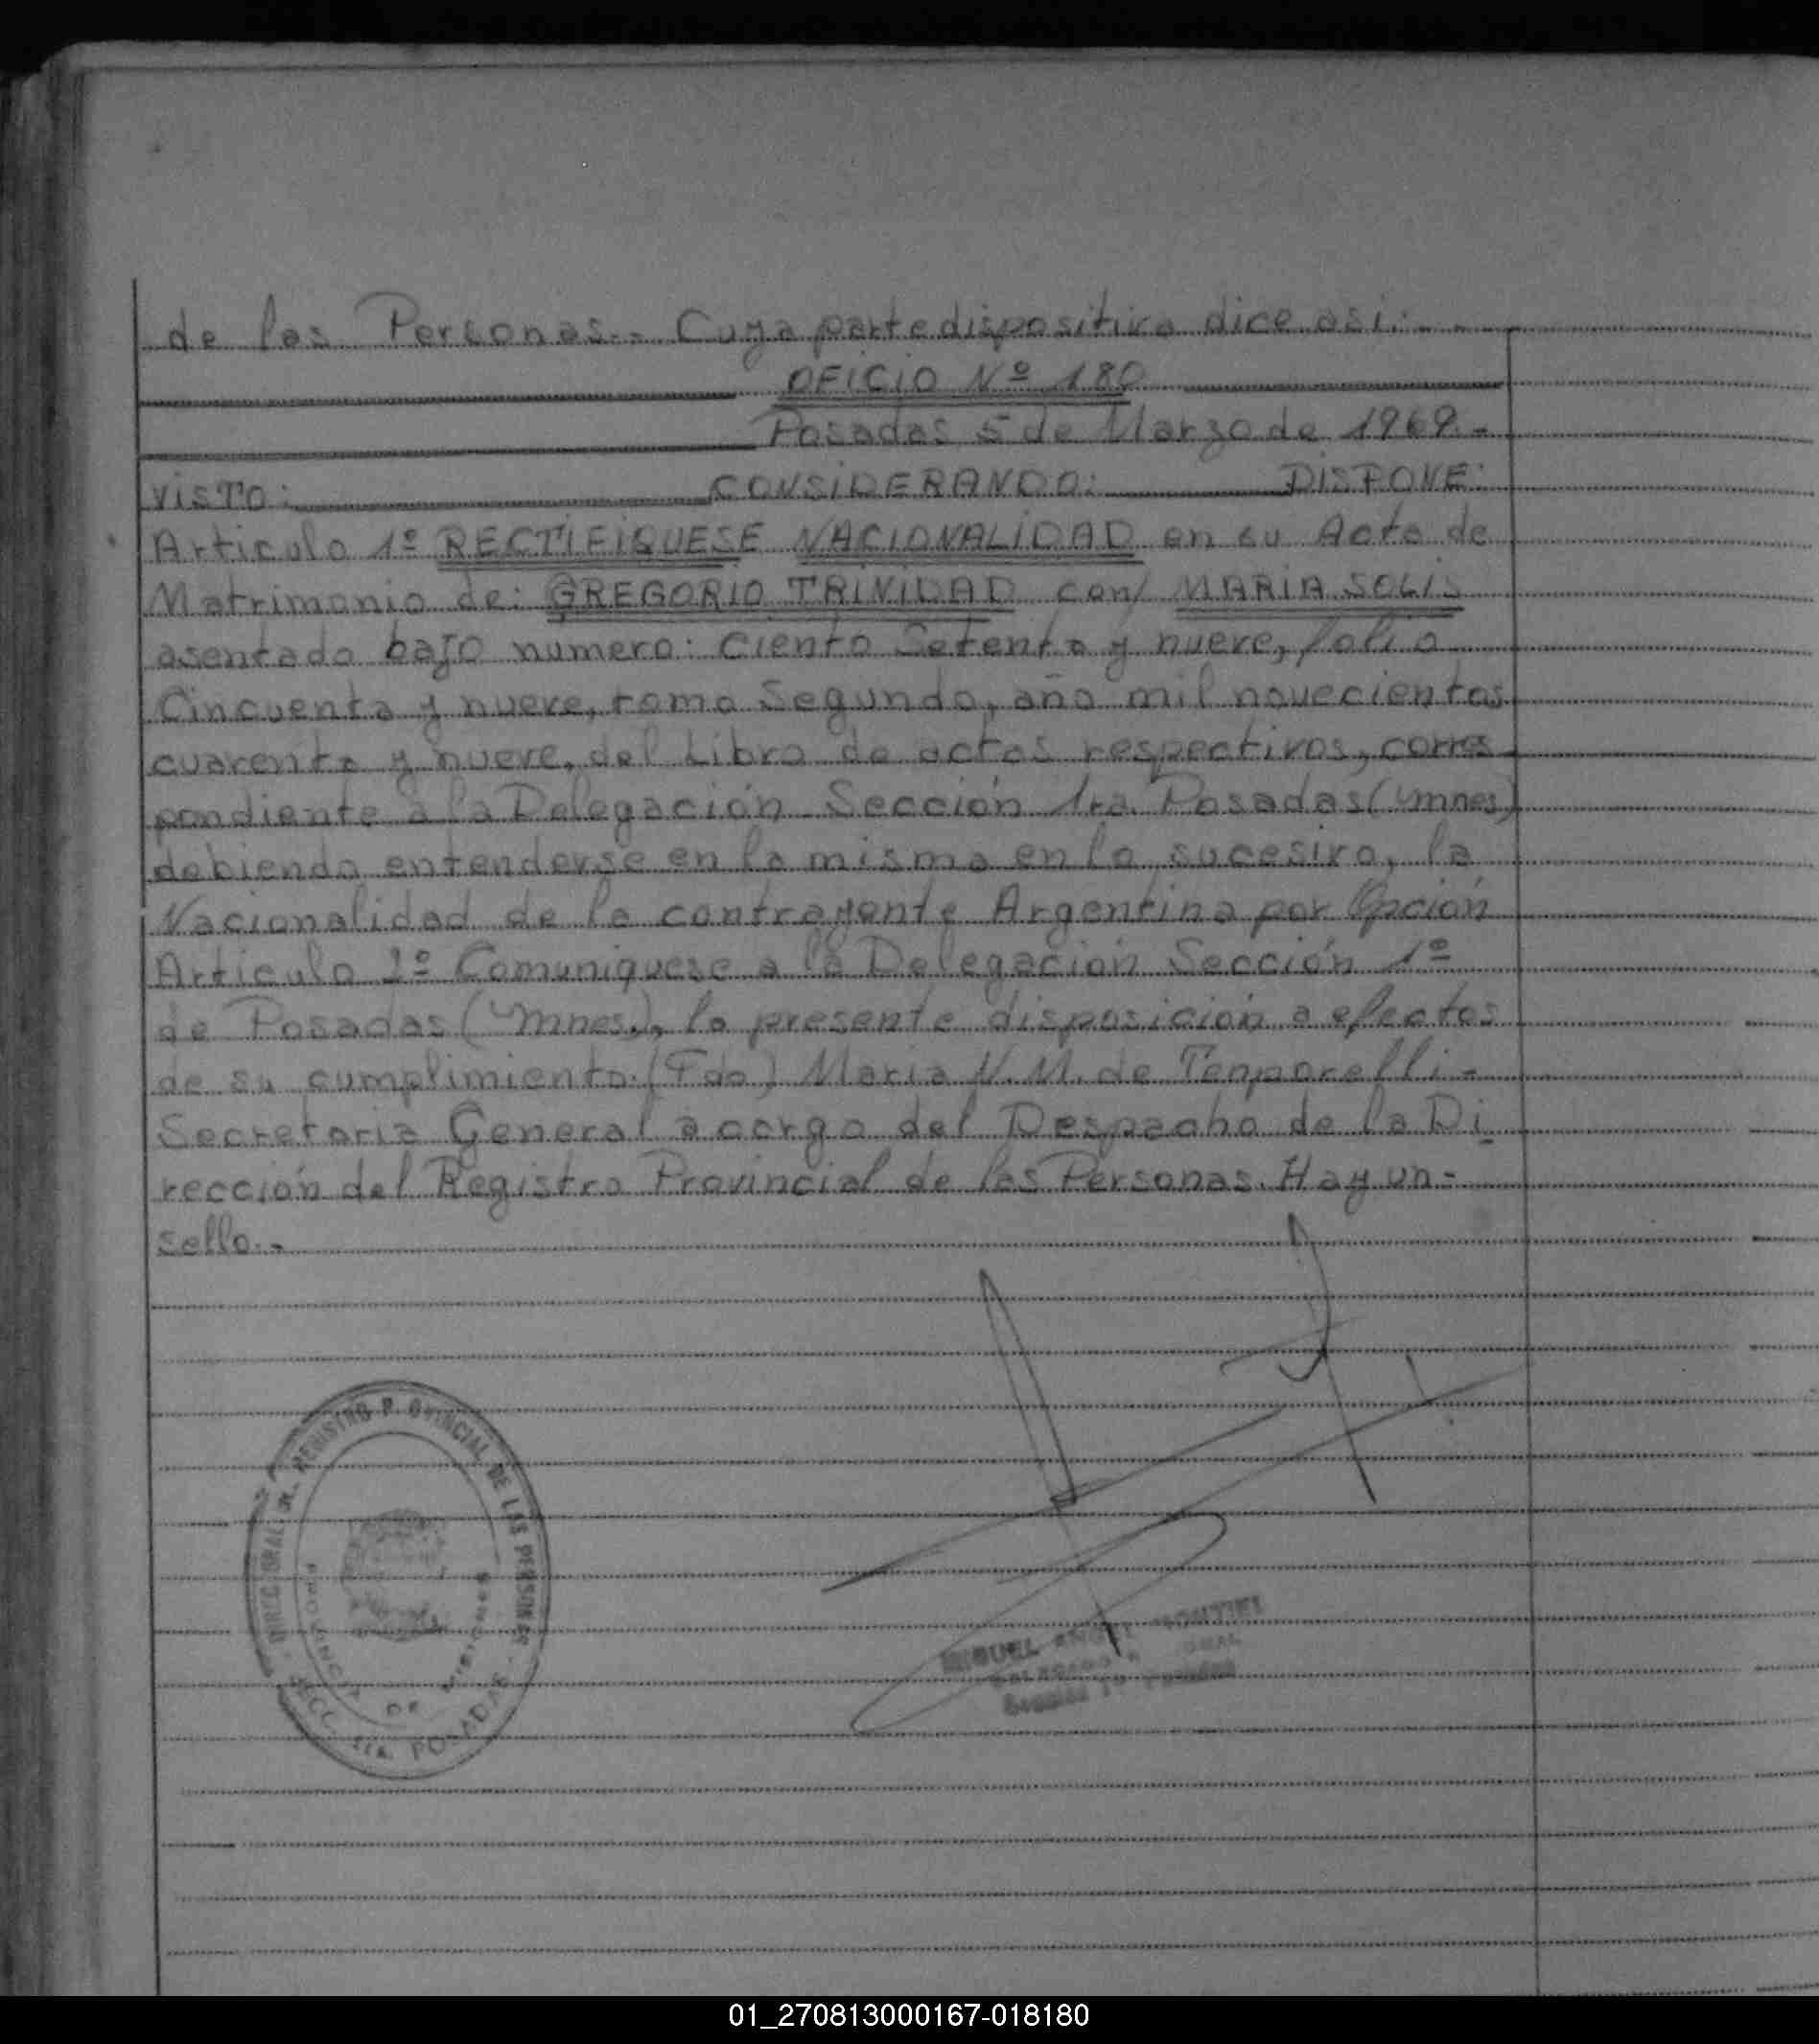 de las Personas.- Cuya parte dispositiva dice asi:-
OFICIO Nº 180
Posadas 5 de Marzo de 1969.-
VISTO: CONSIDERANDO: DISPONE:
Articulo 1º RECTIFIQUESE NACIONALIDAD en su Acta de
Matrimonio de: GREGORIO TRINIDAD con/ MARIA SOLIS
asentado bajo numero: Ciento Setenta y nueve, folio
Cincuenta y nueve, tomo Segundo, año mil novecientos
cuarenta y nueve, del Libro de actas respectivos, corres-
pondiente a la Delegación Sección 1ra. Posadas (Mnes)
debiendo entenderse en la misma en lo sucesivo, la
Nacionalidad de la contrayente Argentina por Opción
Articulo 2º Comuniquese a la Delegación Sección 1º
de Posadas (Mnes.), la presente disposición a efectos
de su cumplimiento. (Fdo) Maria N. M. de Temporelli -
Secretaria General a cargo del Despacho de la Di-
rección del Registro Provincial de las Personas. Hay un-
sello.-
DIREC. GRAL. REGISTRO P OVINCIAL DE LAS PERSONAS
PROVINCIA DE MISIONES
SECC. 1ra. POSADAS
MIGUEL ANGEL
01_270813000167-018180